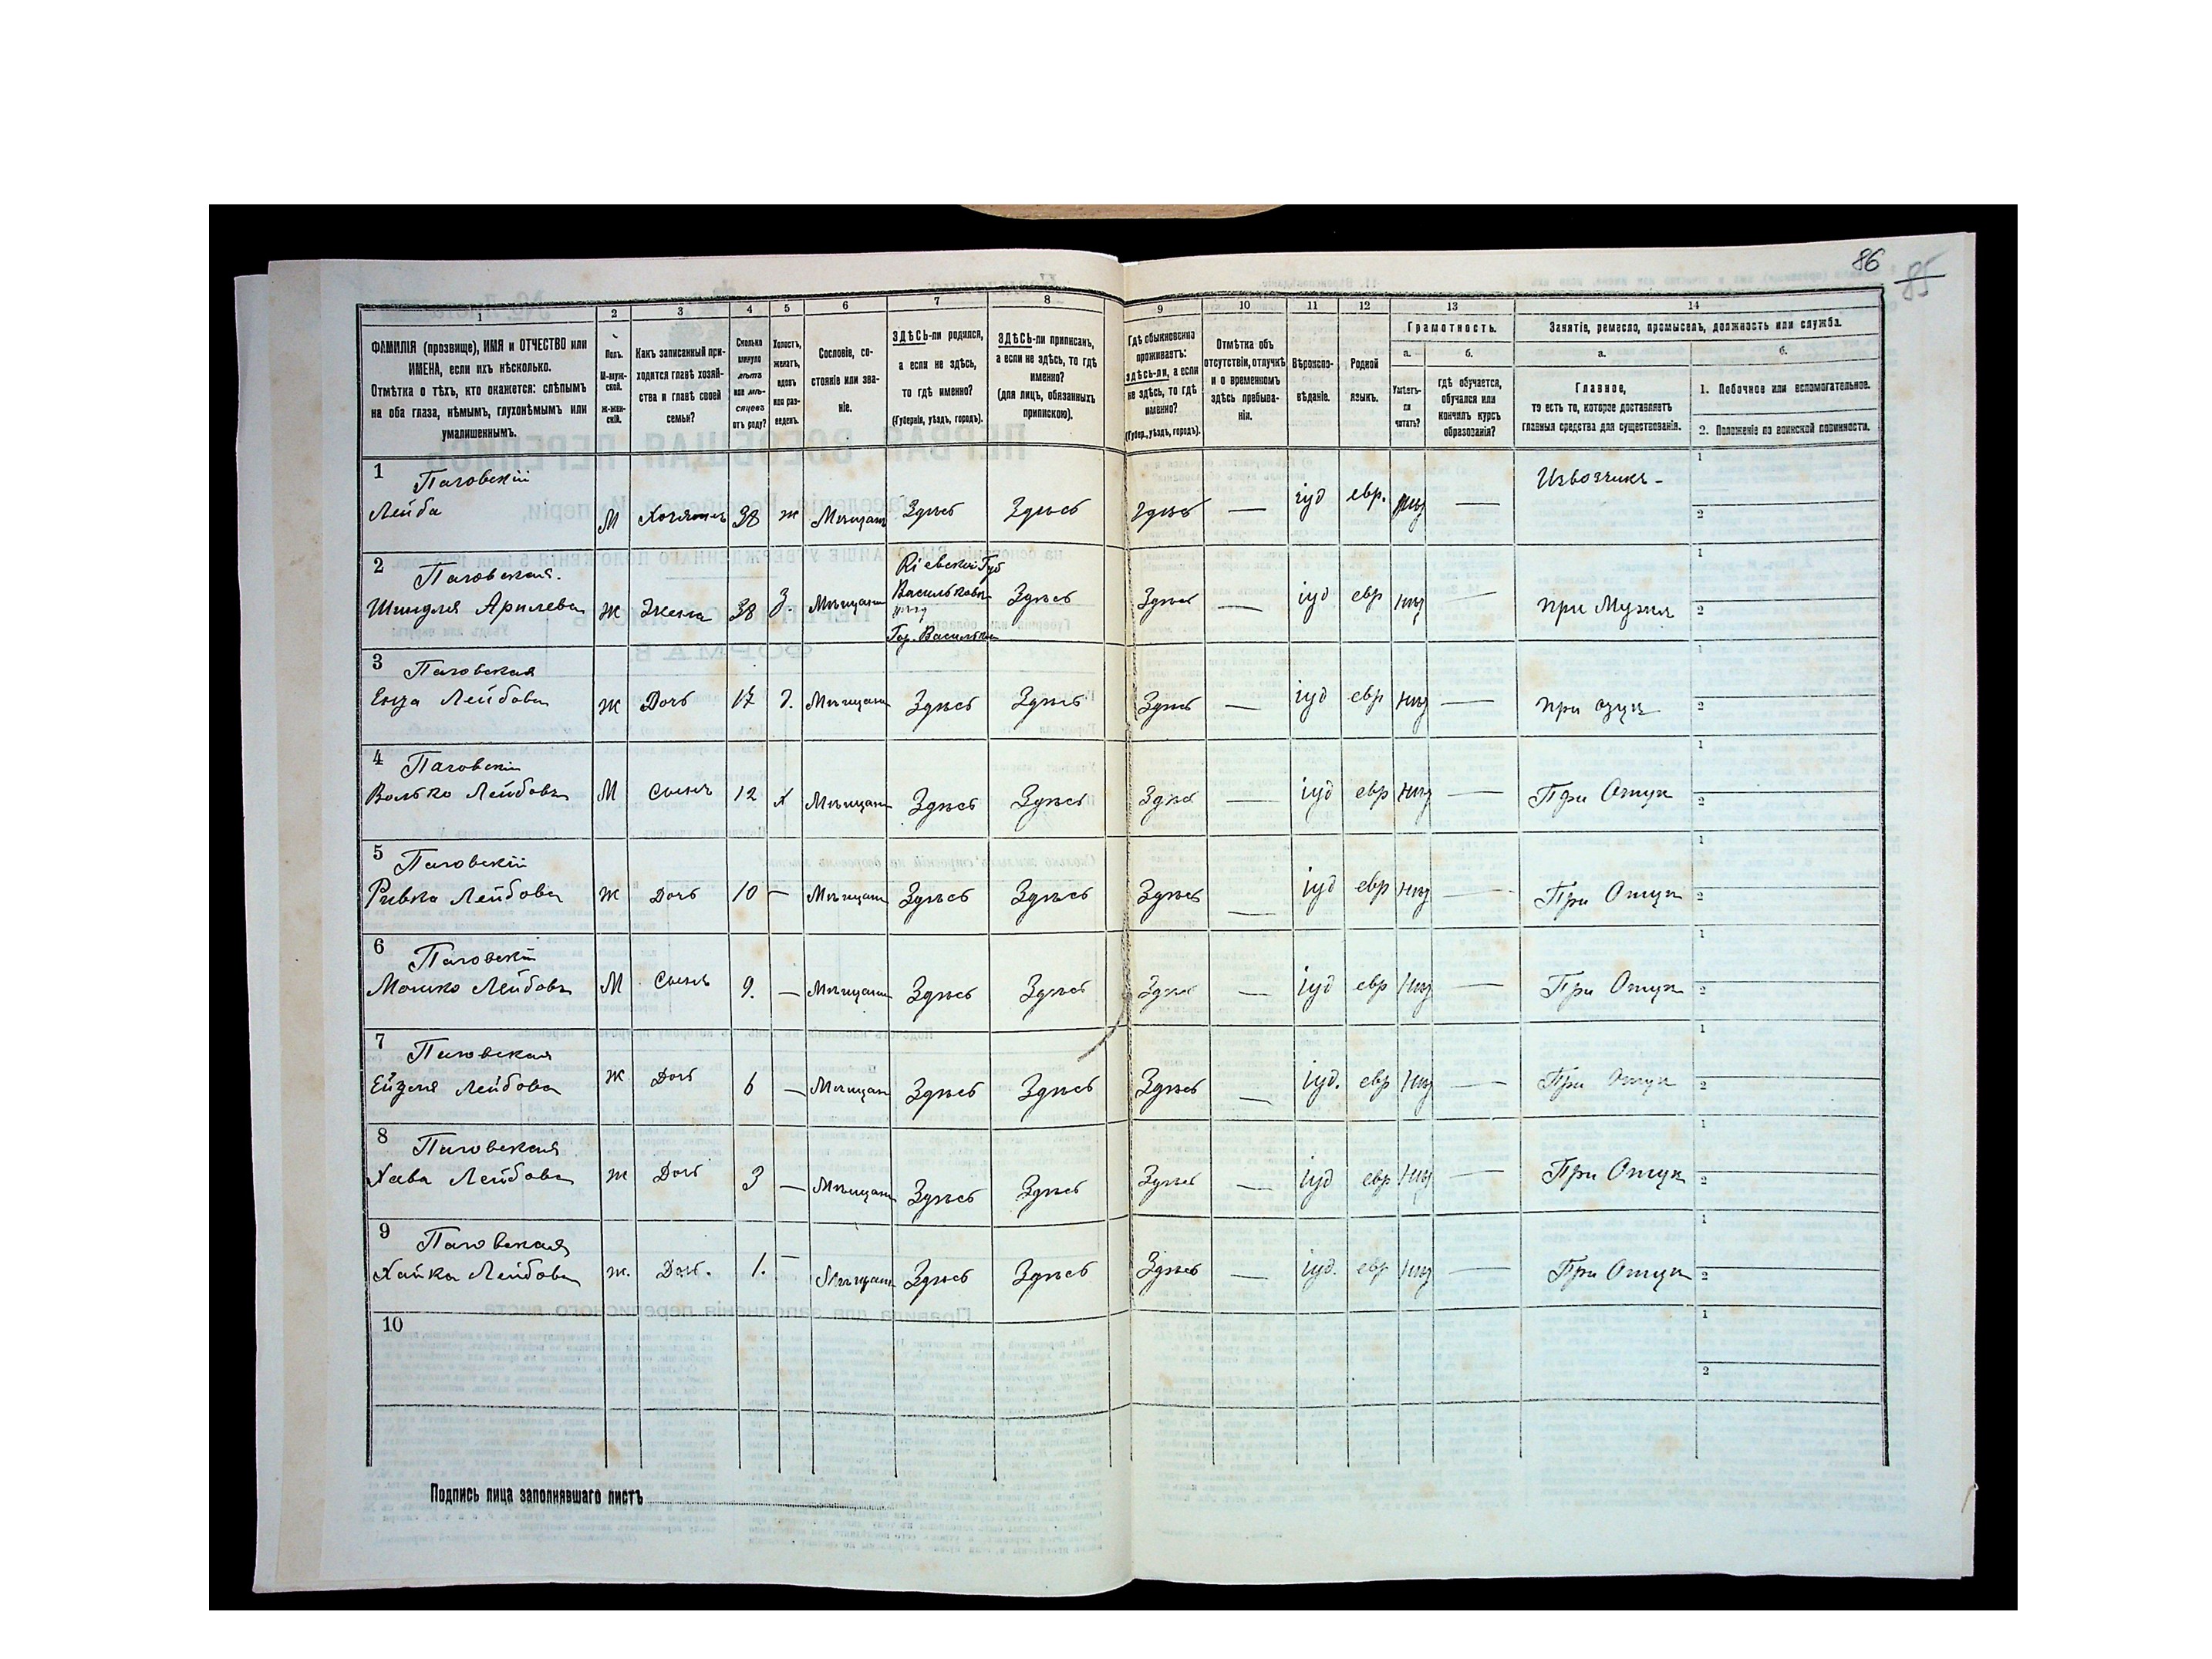 86
85
1 2 3 4 5 6 7 8 9 10 11 12 13 14
ФАМИЛІЯ (прозвище), ИМЯ и ОТЧЕСТВО или
ИМЕНА, если ихъ нѣсколько.
Отмѣтка о тѣхъ, кто окажется: слѣпымъ
на оба глаза, нѣмымъ, глухонѣмымъ или
умалишеннымъ.
Полъ.
М-муж-
ской.
Ж-жен-
скій.
Какъ записанный при-
ходится главѣ хозяй-
ства и главѣ своей
семьи?
Сколько
минуло
лѣтъ
или мѣ-
сяцевъ
отъ роду?
Холостъ,
женатъ,
вдовъ
или раз-
веденъ.
Сословіе, со-
стояніе или зва-
ніе.
ЗДѢСЬ-ли родился,
а если не здѣсь,
то гдѣ именно?
(Губернія, уѣздъ, городъ).
ЗДѢСЬ-ли приписанъ,
а если не здѣсь, то гдѣ
именно?
(для лицъ, обязанныхъ
припискою).
Гдѣ обыкновенно
проживаетъ:
здѣсь-ли, а если
не здѣсь, то гдѣ
именно?
(Губер., уѣздъ, городъ).
Отмѣтка объ
отсутствіи, отлучкѣ
и о временномъ
здѣсь пребыва-
ніи.
Вѣроиспо-
вѣданіе.
Родной
языкъ.
Грамотность.
а. б.
Умѣетъ-
ли
читать?
гдѣ обучается,
обучался или
кончилъ курсъ
образованія?
Занятіе, ремесло, промыселъ, должность или служба.
а. б.
Главное,
то есть то, которое доставляетъ
главныя средства для существованія.
1. Побочное или вспомогательное.
2. Положеніе по воинской повинности.
1 Паговскій
Лейба М Хозяинъ 38 ж Мѣщан Здѣсь Здѣсь Здѣсь — іуд евр. — Извозчикъ -
1
2
2 Паговская.
Шиндля Арилева ж Жена 38 З. Мѣщан
Кіевской Губ
Васильковск
уѣзд
Гор. Василькъ
Здѣсь Здѣсь — іуд евр — при Мужѣ
1
2
3 Паговская
Лейбова ж Дочь 17 Мѣщан Здѣсь Здѣсь Здѣсь — іуд евр — при
1
2
4 Паговскій
Волько Лейбовъ М Сынъ 12 х Мѣщан Здѣсь Здѣсь Здѣсь — іуд евр — При Отцѣ
1
2
5 Паговскій
Ривка Лейбова ж Дочь 10 — Мѣщан Здѣсь Здѣсь Здѣсь — іуд евр — При Отцѣ
1
2
6 Паговскій
Мошко Лейбовъ М Сынъ 9. — Мѣщан Здѣсь Здѣсь Здѣсь — іуд евр — При Отцѣ
1
2
7 Паговская
Ейзля Лейбова ж Дочь 6 — Мѣщан Здѣсь Здѣсь Здѣсь — іуд. евр — При Отцѣ
1
2
8 Паговская
Хава Лейбова ж Дочь 3 — Мѣщан Здѣсь Здѣсь Здѣсь — іуд евр — При Отцѣ
1
2
9 Паговская
Хайка Лейбова ж. Доч. 1. — Мѣщан Здѣсь Здѣсь Здѣсь — іуд. евр — При Отцѣ
1
2
10
1
2
Подпись лица заполнявшаго листъ